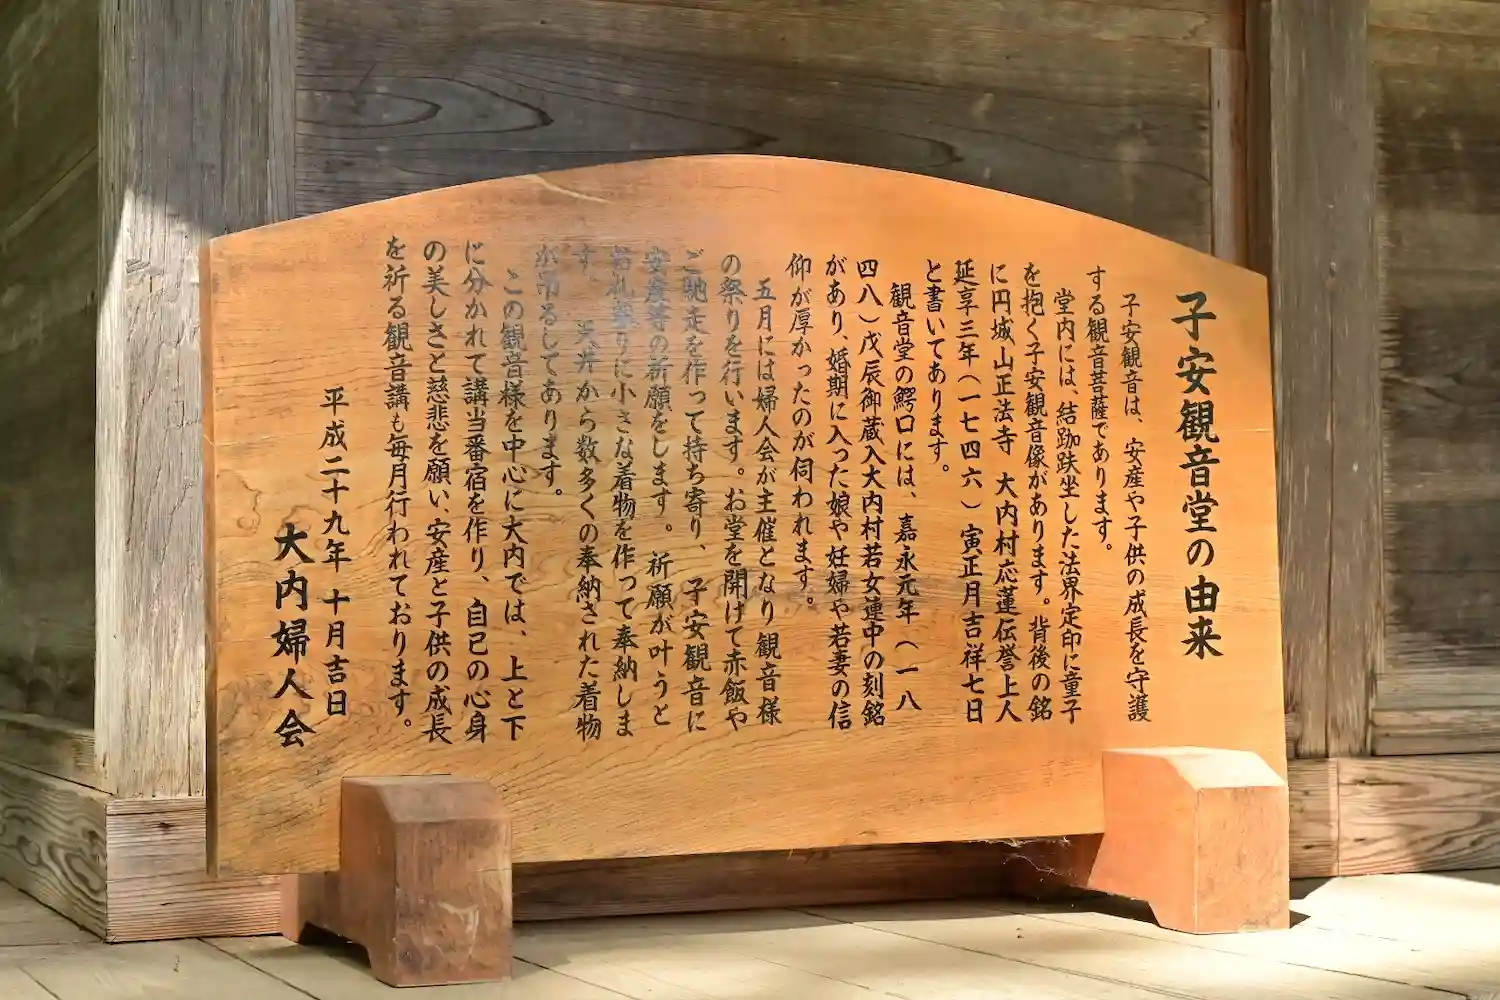 子安観音堂の由来
子安観音は、安産や子供の成長を守護
する観音菩薩であります。
堂内には、結跏趺坐した法界定印に童子
を抱く子安観音像があります。背後の銘
に円城山正法寺 大内村応蓮伝誉上人
延享三年(一七四六)寅正月吉祥七日
と書いてあります。
観音堂の鰐口には、嘉永元年(一八
四八)戊辰御蔵入大内村若女連中の刻銘
があり、婚期に入った娘や妊婦や若妻の信
仰が厚かったのが伺われます。
五月には婦人会が主催となり観音様
の祭りを行います。お堂を開けて赤飯や
ご馳走を作って持ち寄り、子安観音に
安産等の祈願をします。祈願が叶うと
御礼参りに小さな着物を作って奉納しま
す。 天井から数多くの奉納された着物
が吊るしてあります。
この観音様を中心に大内では、上と下
に分かれて講当番宿を作り、自己の心身
の美しさと慈悲を願い、安産と子供の成長
を祈る観音講も毎月行われております。
平成二十九年 十月吉日
大内婦人会